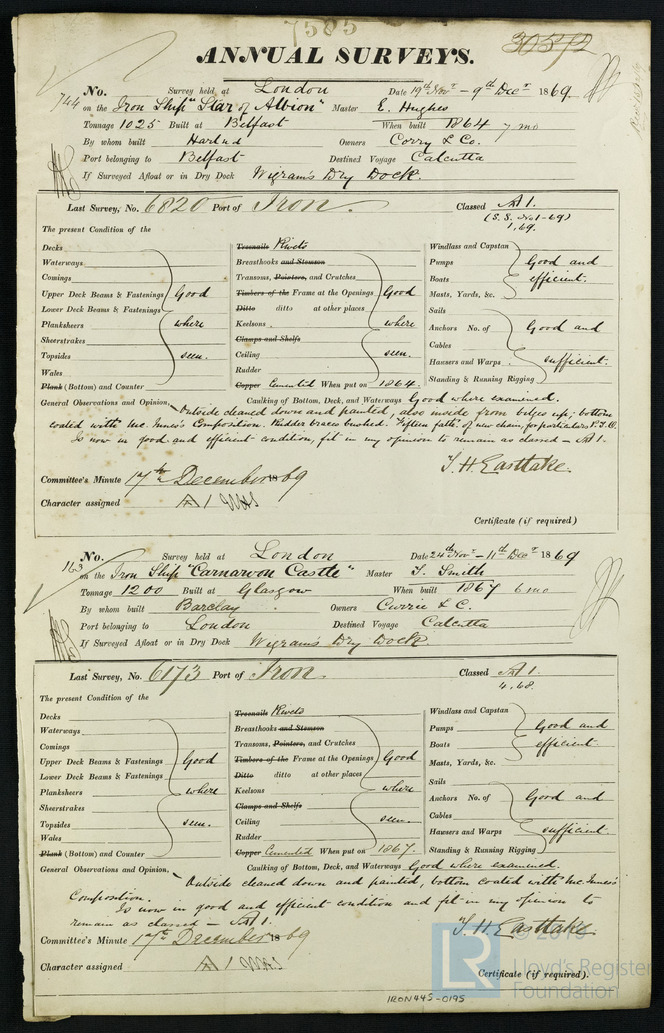 7585
30572
ANNUAL SURVEYS.
744
No. Survey held at London Date 19th Novr - 9th Decr 1869
on the Iron Ship "Star of Albion" Master E. Hughes
Tonnage 1025 Built at Belfast When built 1864 7 mo
By whom built Harland Owners Corry & Co.
Port belonging to Belfast Destined Voyage Calcutta
If Surveyed Afloat or in Dry Dock Wigram's Dry Dock.
Last Survey, No. 6820 Port of Iron. Classed A1.
(S.S. No1-69)
1,69.
The present Condition of the
Decks
Waterways
Comings
Upper Deck Beams & Fastenings
Lower Deck Beams & Fastenings
Planksheers
Sheerstrakes
Topsides
Wales
Plank (Bottom) and Counter
Good
where
seen.
Treenails Rivets
Breasthooks and Stemson
Transoms, Pointers, and Crutches
Timbers of the Frame at the Openings
Ditto ditto at other places
Keelsons
Clamps and Shelfs
Ceiling
Rudder
Copper Cemented When put on 1864.
Good
where
seen.
Windlass and Capstan
Pumps
Boats
Masts, Yards, &c.
Good and
efficient.
Sails
Anchors No. of
Cables
Hawsers and Warps
Standing & Running Rigging
Good and
sufficient.
Caulking of Bottom, Deck, and Waterways Good where examined.
General Observations and Opinion, Outside cleaned down and painted, also inside from bilges up; bottom
coated with Mc.Innes's Composition. Rudder braces bushed. Fifteen faths. of new chain, for particulars P.T.O.
Is now in good and efficient condition, fit in my opinion to remain as classed — A1.
T. H. Eastlake.
Committee's Minute 17th December 1869
Character assigned A1
Certificate (if required)
163
No. Survey held at London Date 24th Novr - 11th Decr 1869
on the Iron Ship "Carnarvon Castle" Master T. Smith
Tonnage 1200 Built at Glasgow When built 1867 6 mo
By whom built Barclay Owners Currie & C.
Port belonging to London Destined Voyage Calcutta
If Surveyed Afloat or in Dry Dock Wigram's Dry Dock
Last Survey, No. 6173 Port of Iron. Classed A1.
4,68.
The present Condition of the
Decks
Waterways
Comings
Upper Deck Beams & Fastenings
Lower Deck Beams & Fastenings
Planksheers
Sheerstrakes
Topsides
Wales
Plank (Bottom) and Counter
Good
where
seen.
Treenails Rivets
Breasthooks and Stemson
Transoms, Pointers, and Crutches
Timbers of the Frame at the Openings
Ditto ditto at other places
Keelsons
Clamps and Shelfs
Ceiling
Rudder
Copper Cemented When put on 1867.
Good
where
seen.
Windlass and Capstan
Pumps
Boats
Masts, Yards, &c.
Good and
efficient.
Sails
Anchors No. of
Cables
Hawsers and Warps
Standing & Running Rigging
Good and
sufficient.
Caulking of Bottom, Deck, and Waterways Good where examined.
General Observations and Opinion, Outside cleaned down and painted, bottom coated with Mc.Innes's
Composition.
Is now in good and efficient condition and fit in my opinion to
remain as classed — A1.
T. H. Eastlake.
Committee's Minute 17th December 1869
Character assigned A1
Certificate (if required).
LR
Lloyd's Register
Foundation
IRON445-0195